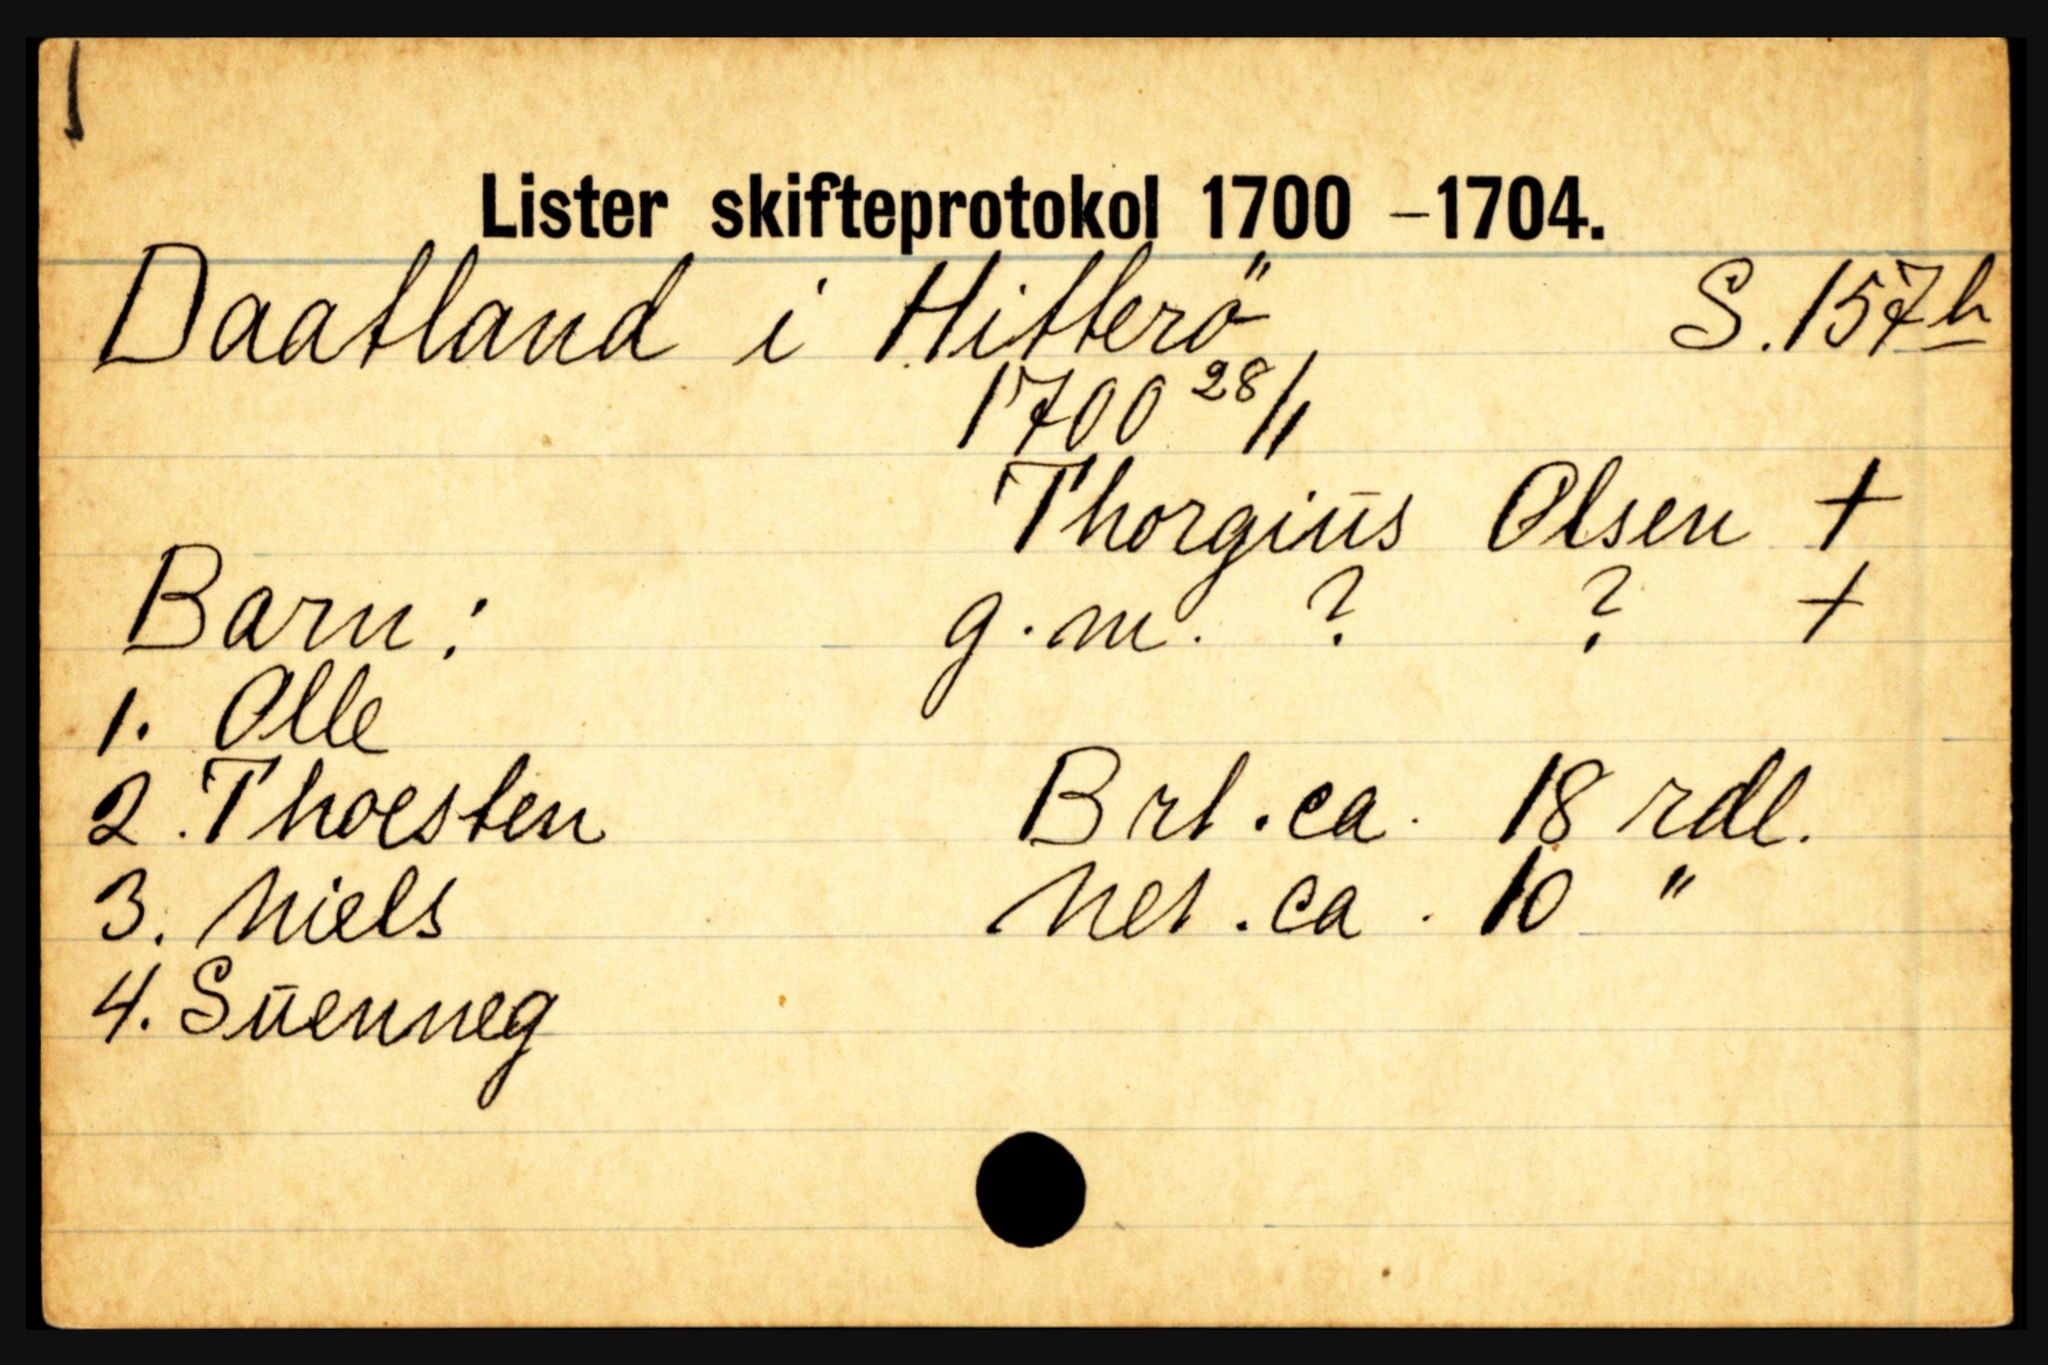 Lister skifteprotokol 1700 –1704.
Daatland i Hitterö S. 157b
1700 28/11
Thorgiūs Olsen +
Barn: g. m. ? ? +
1. Olle
2. Thoesten Brt. ca. 18 rdl.
3. Niels Net. ca. 10 "
4. Sūenneg